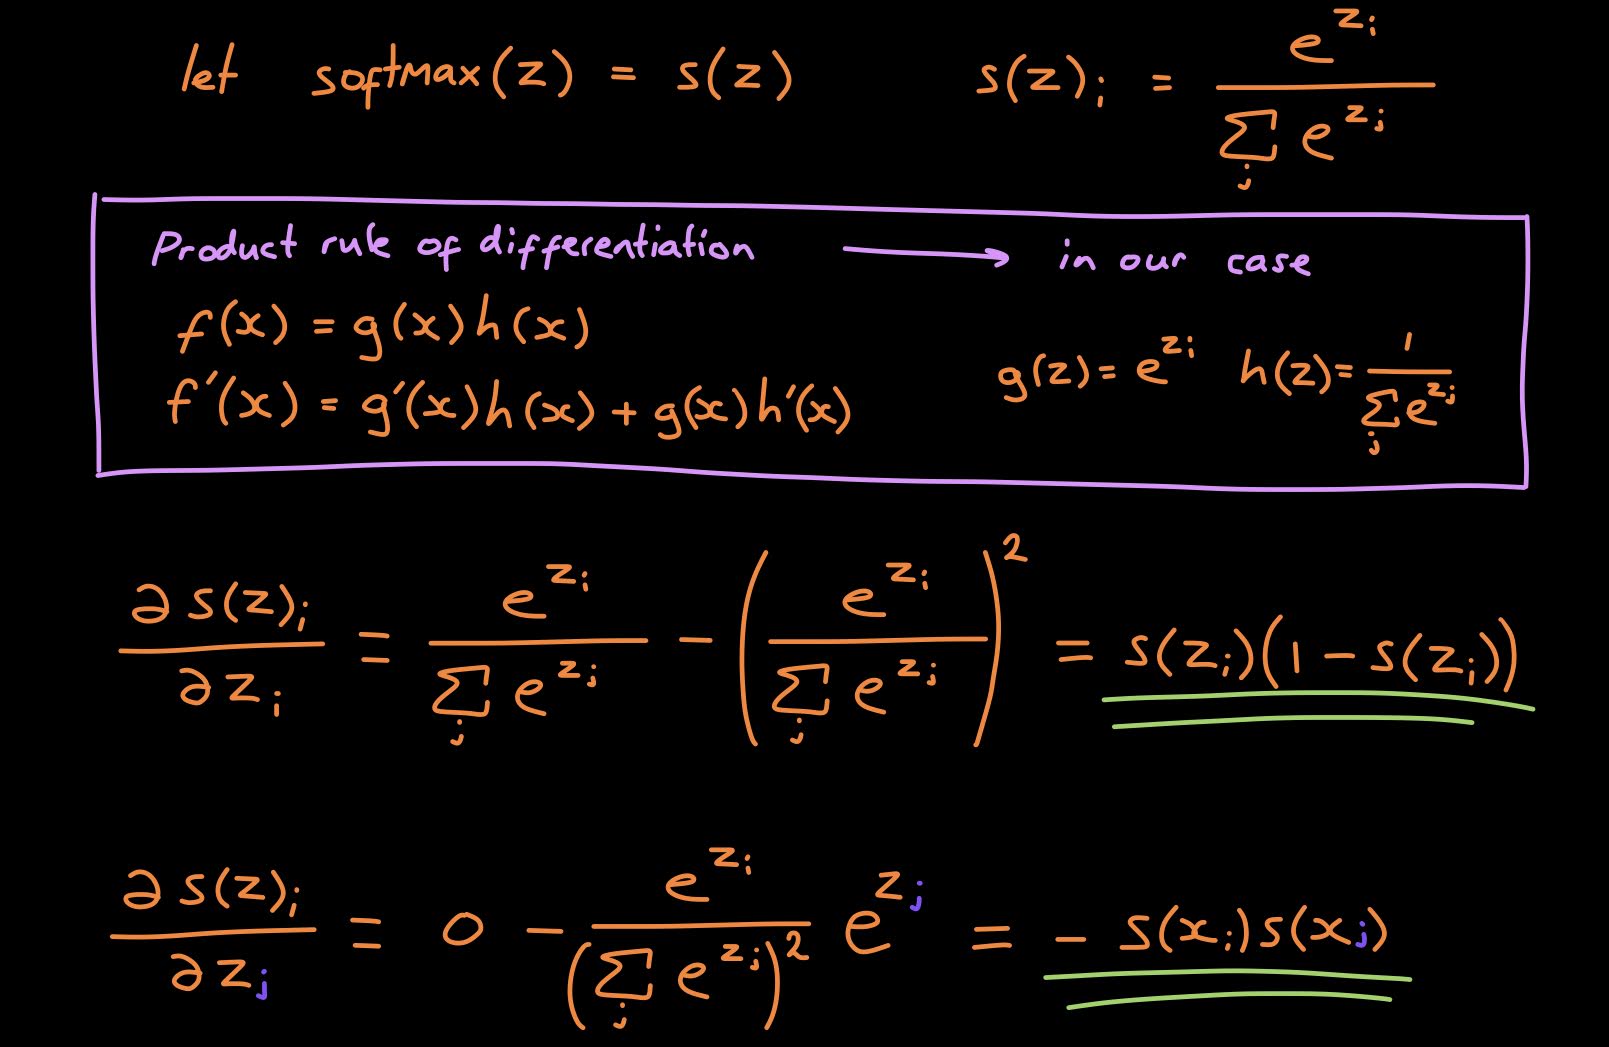 let softmax(z) = s(z)    s(z)_i = e^{z_i} / ∑_j e^{z_j}
Product rule of differentiation → in our case
f(x) = g(x)h(x)
g(z) = e^{z_i}  h(z) = 1 / ∑_j e^{z_j}
f'(x) = g'(x)h(x) + g(x)h'(x)
∂s(z)_i / ∂z_i = e^{z_i} / ∑_j e^{z_j} − (e^{z_i} / ∑_j e^{z_j})^2 = s(z_i)(1 − s(z_i))
∂s(z)_i / ∂z_j = 0 − e^{z_i} / (∑_j e^{z_j})^2 e^{z_j} = − s(x_i)s(x_j)